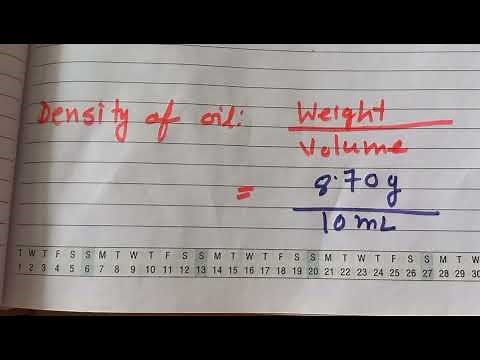 Density of oil: Weight
Volume
= 8.70g
10 mL
T W T F S S M T W T F S S M T W T F S S M T W T F S S M T W
1 2 3 4 5 6 7 8 9 10 11 12 13 14 15 16 17 18 19 20 21 22 23 24 25 26 27 28 29 30